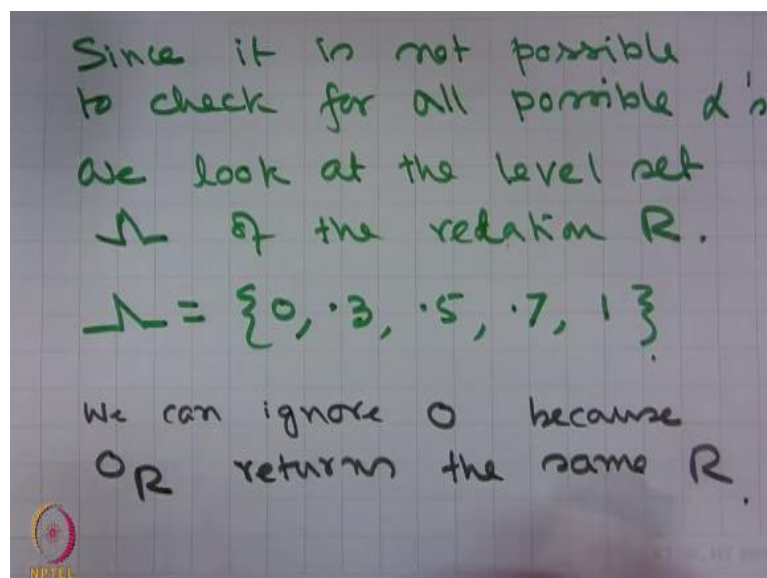 Since it is not possible
to check for all possible α's
we look at the level set
Λ of the relation R.
Λ = {0, .3, .5, .7, 1}
We can ignore 0 because
⁰R returns the same R.
NPTEL